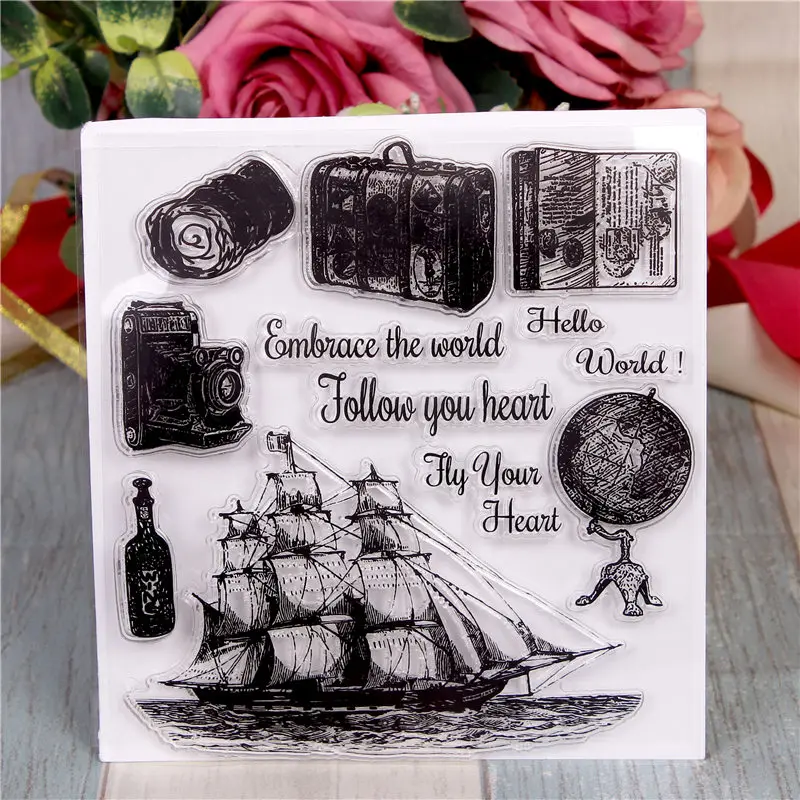 Hello
World !
Embrace the world
Follow you heart
Fly Your
Heart